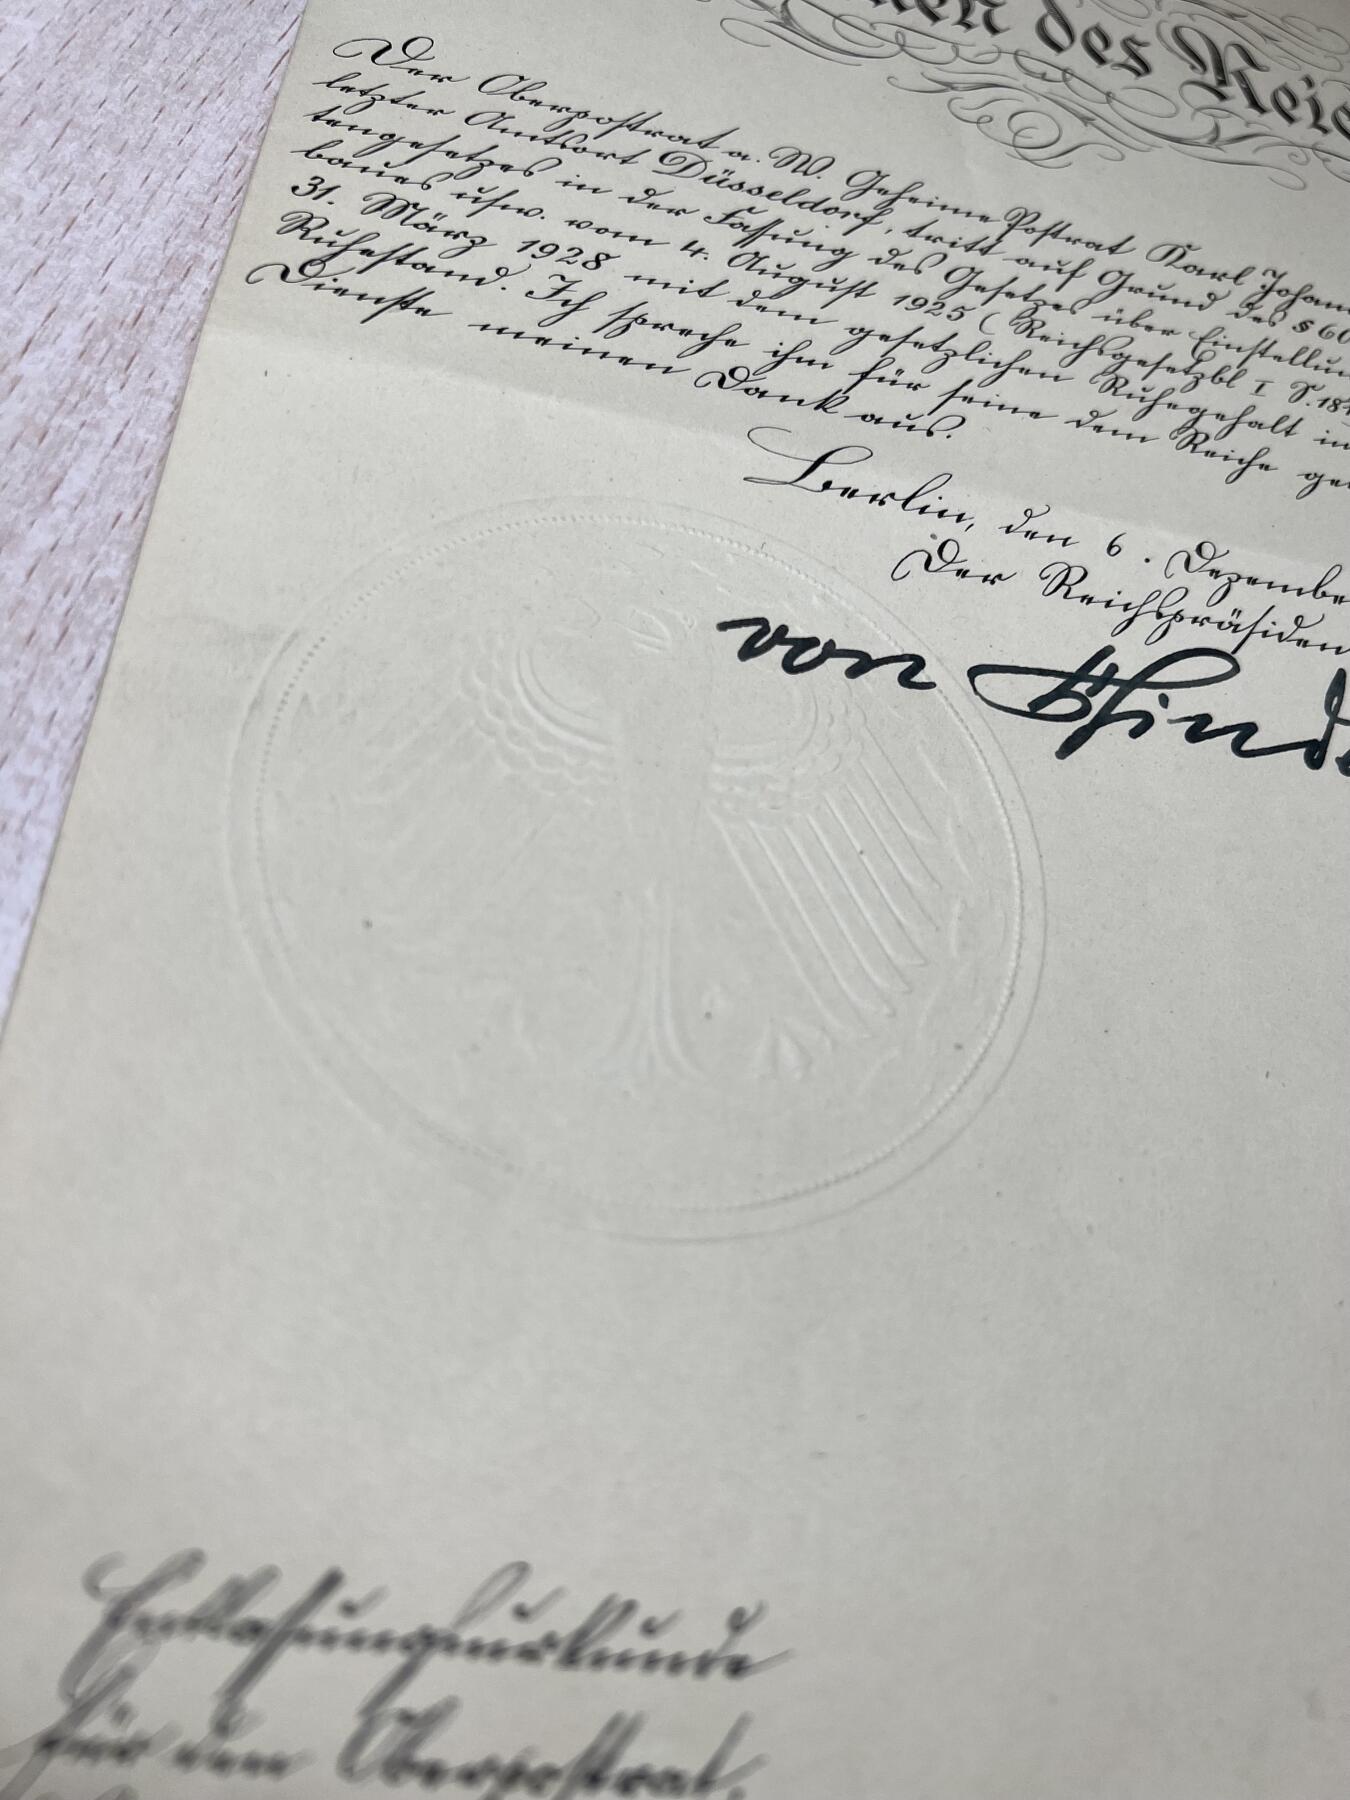 des Reic
Der Oberpostrat a. W. Geheime Postrat Karl Johann
letzter Amtsort Düsseldorf, tritt auf Grund des § 60
tengesetzes in der Fassung des Gesetzes über Einstellun
baues usw. vom 4. August 1925 (Reichsgesetzbl I S. 181
31. März 1928 mit dem gesetzlichen Ruhegehalt in
Ruhestand. Ich spreche ihm für seine dem Reiche ge
Dienste meinen Dank aus.
Berlin, den 6. Dezembe
Der Reichspräsiden
von Hinde
Entlassungsurkunde
für den Oberpostrat